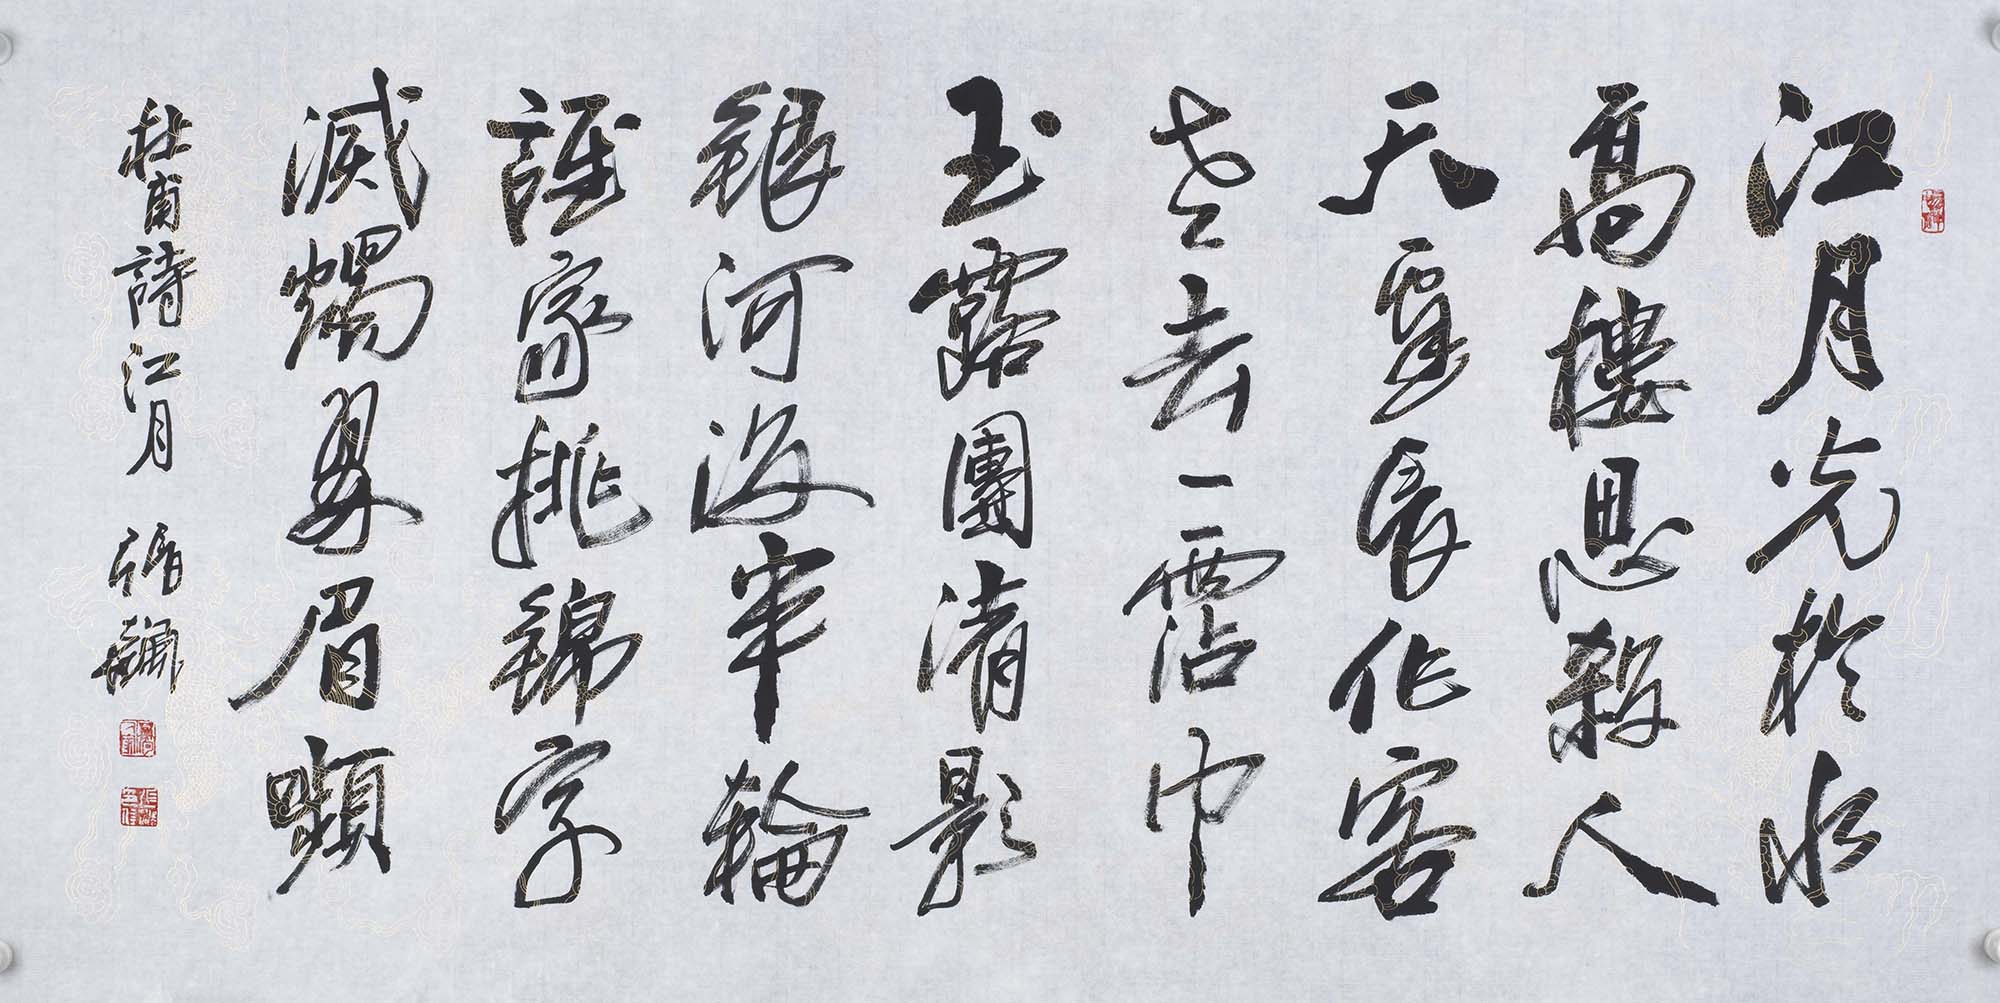 江月光於水
高樓思殺人
天邊長作客
老去一霑巾
玉露團清影
銀河沒半輪
誰家挑錦字
滅燭翠眉嚬
杜甫詩江月